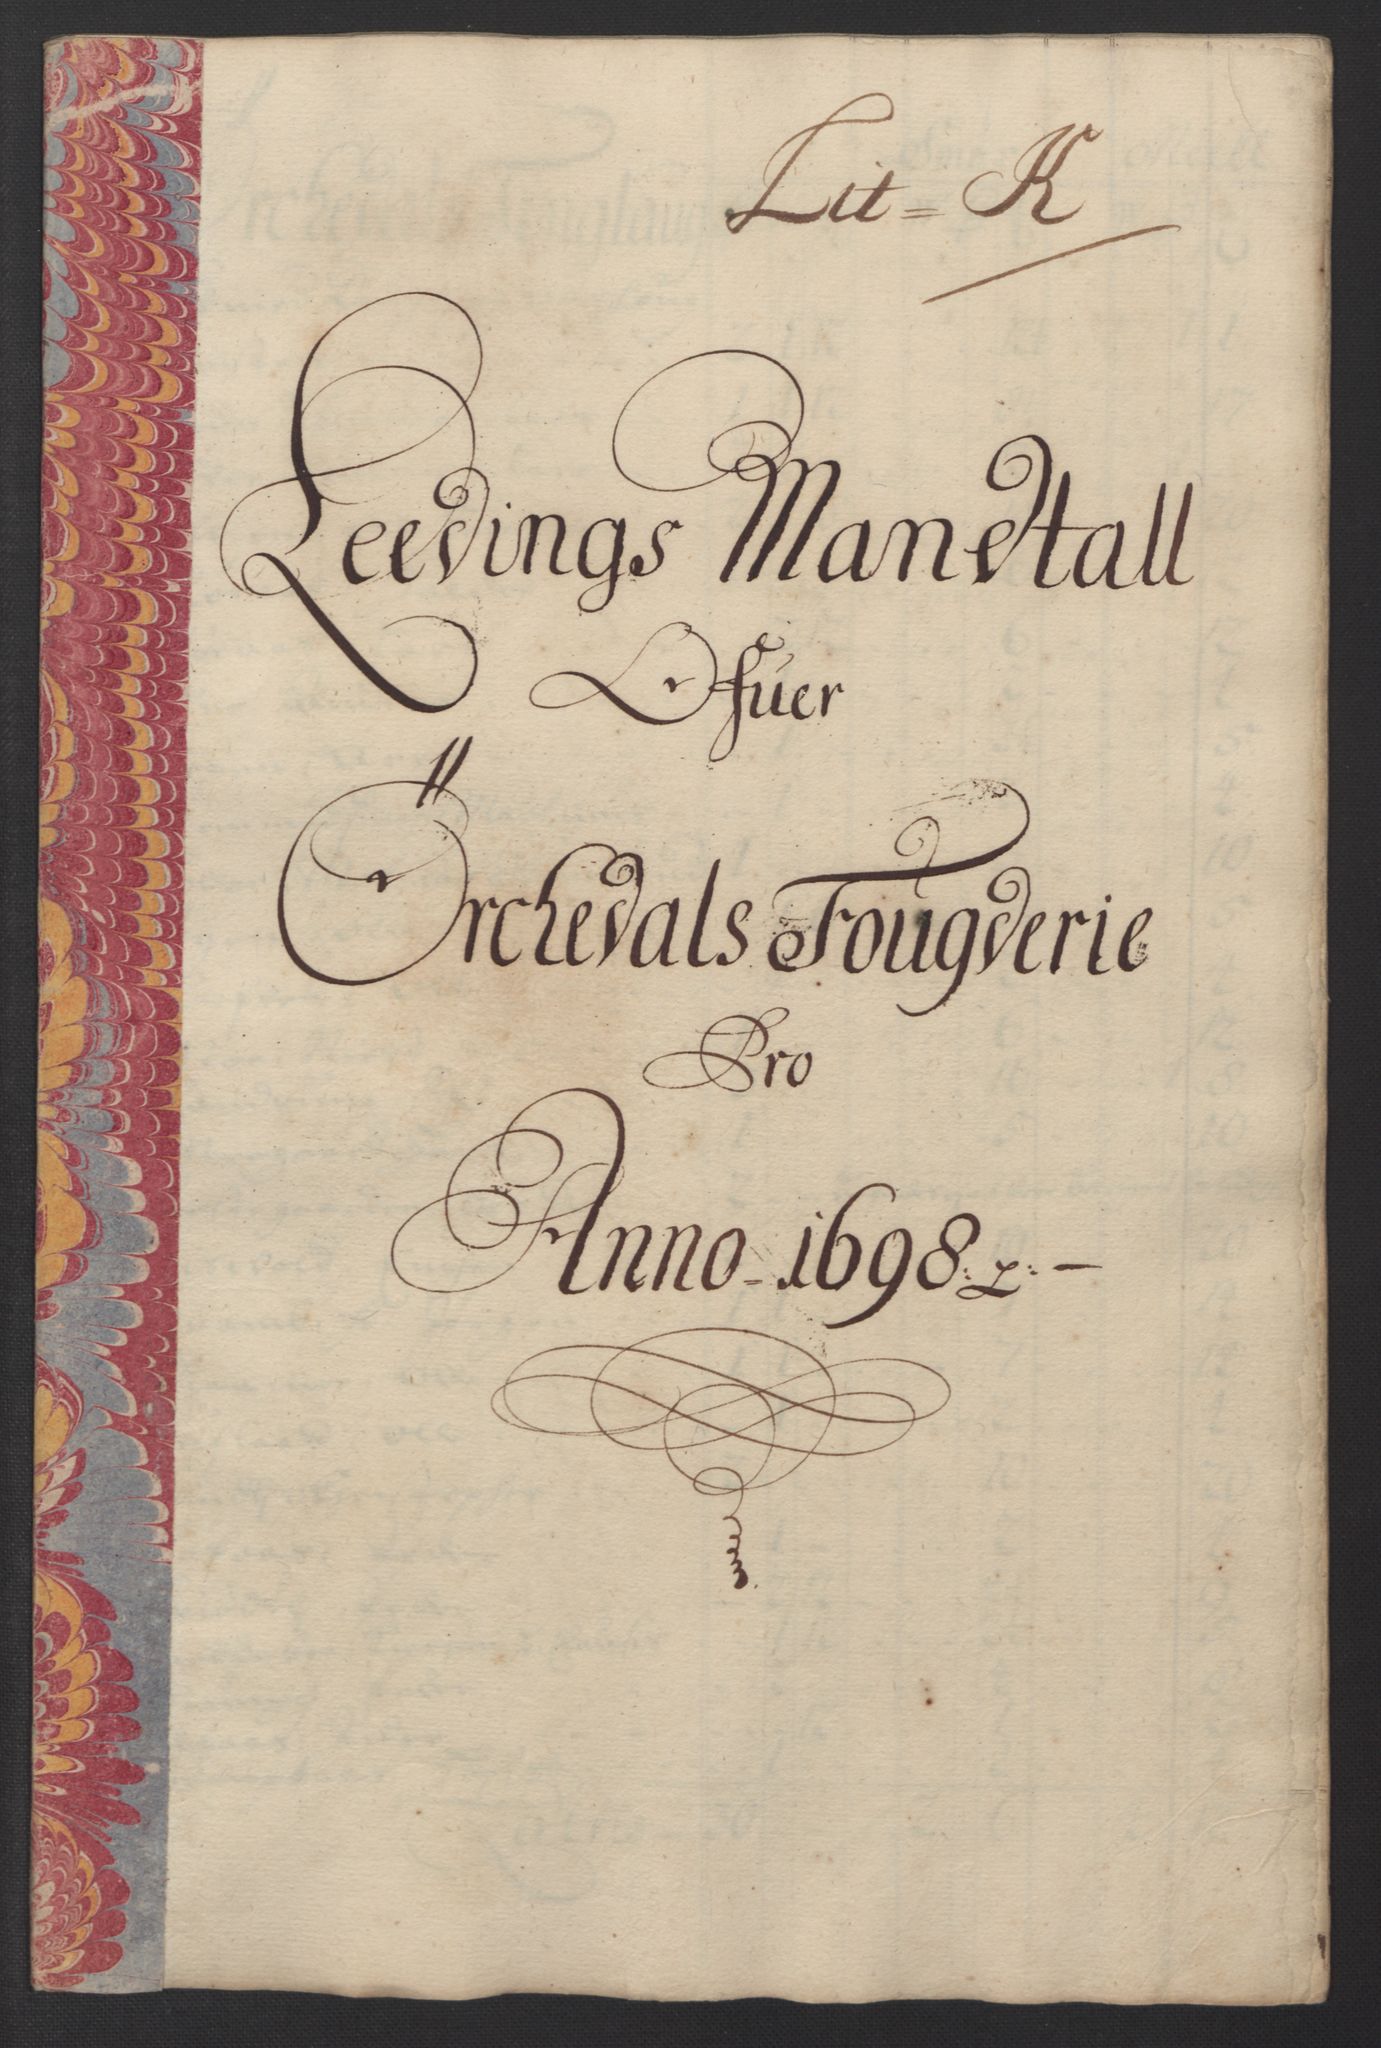 Lit = K
Leedings Mandtall
Ofuer
Örchedals Fougderie
Pro
Anno 1698